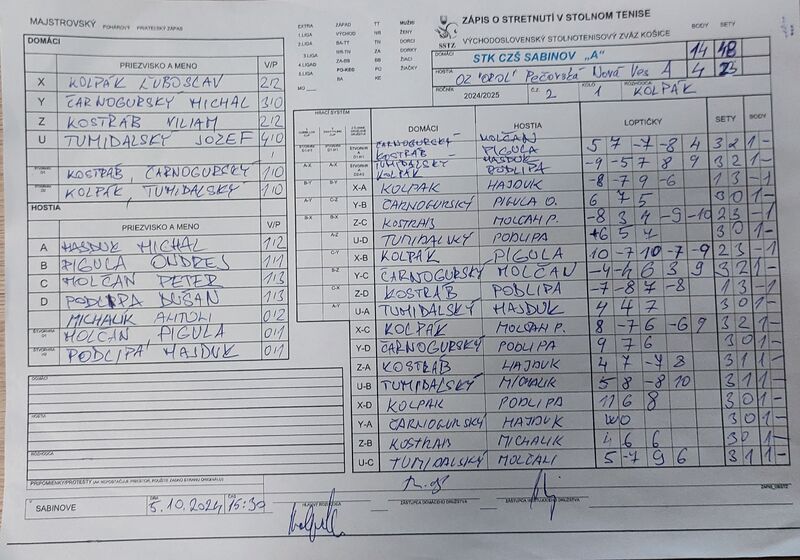 MAJSTROVSKÝ POHÁROVÝ PRIATEĽSKÝ ZÁPAS
DOMÁCI
PRIEZVISKO A MENO V/P
X KOLPÁK ĽUBOSLAV 2/2
Y ČARNOGURSKÝ MICHAL 3/0
Z KOSTRÁB VILIAM 2/2
U TUMIDALSKÝ JOZEF 4/0
KOSTRÁB, ČARNOGURSKÝ 1/0
KOLPÁK, TUMIDALSKÝ 1/0
HOSTIA
PRIEZVISKO A MENO V/P
A HAJDUK MICHAL 1/2
B PIGULA ONDREJ 1/1
C MOLČAN PETER 1/3
D PODLIPA DUŠAN 1/3
MICHALIK 0/2
MOLČAN PIGULA 0/1
PODLIPA HAJDUK 0/1
DOMÁCI
HOSTIA
ROZHODCA
PRIPOMIENKY/PROTESTY
V SABINOVE DŇA 5.10.2024 ČAS 15:30
HLAVNÝ ROZHODCA
ZÁSTUPCA DOMÁCEHO DRUŽSTVA
EXTRA ZÁPAD TT MUŽI
1.LIGA VÝCHOD NR ŽENY
2.LIGA BA-TT TN DORCI
3.LIGA NR-TN ZA DORKY
4.LIGA ZA-BB BB ŽIACI
5.LIGA PO-KE KE ŽIAČKY
SSTZ
ZÁPIS O STRETNUTÍ V STOLNOM TENISE
VÝCHODOSLOVENSKÝ STOLNOTENISOVÝ ZVÄZ KOŠICE
BODY SETY
DOMÁCI STK CZŠ SABINOV "A" 14 48
HOSTIA OZ "OROL" Pečovská Nová Ves A 4 23
ROČNÍK 2024/2025 Č.Z. 2 KOLO 1 ROZHODCA KOLPÁK
HRACÍ SYSTÉM DOMÁCI HOSTIA LOPTIČKY SETY BODY
ČARNOGURSKÝ KOSTRÁB MOLČAN PIGULA 5 7 -7 -8 4 3 2 1 -
TUMIDALSKÝ KOLPÁK HAJDUK PODLIPA -9 -5 7 8 9 3 2 1 -
X-A KOLPÁK HAJDUK -8 -7 9 -6 1 3 - 1
Y-B ČARNOGURSKÝ PIGULA O. 6 7 5 3 0 1 -
Z-C KOSTRÁB MOLČAN P. -8 3 4 -9 -10 2 3 - 1
U-D TUMIDALSKÝ PODLIPA 6 5 7 3 0 1 -
X-B KOLPÁK PIGULA 10 -7 10 -7 -9 2 3 - 1
Y-C ČARNOGURSKÝ MOLČAN -4 -4 6 3 9 3 2 1 -
Z-D KOSTRÁB PODLIPA -7 -8 7 -8 1 3 - 1
U-A TUMIDALSKÝ HAJDUK 4 4 7 3 0 1 -
X-C KOLPÁK MOLČAN P. 8 -7 6 -6 9 3 2 1 -
Y-D ČARNOGURSKÝ PODLIPA 9 7 6 3 0 1 -
Z-A KOSTRÁB HAJDUK 4 7 -7 8 3 1 1 -
U-B TUMIDALSKÝ MICHALIK 5 8 -8 10 3 1 1 -
X-D KOLPÁK PODLIPA 11 6 8 3 0 1 -
Y-A ČARNOGURSKÝ HAJDUK WO 3 0 1 -
Z-B KOSTRÁB MICHALIK 4 6 6 3 0 1 -
U-C TUMIDALSKÝ MOLČAN 5 -7 9 6 3 1 1 -